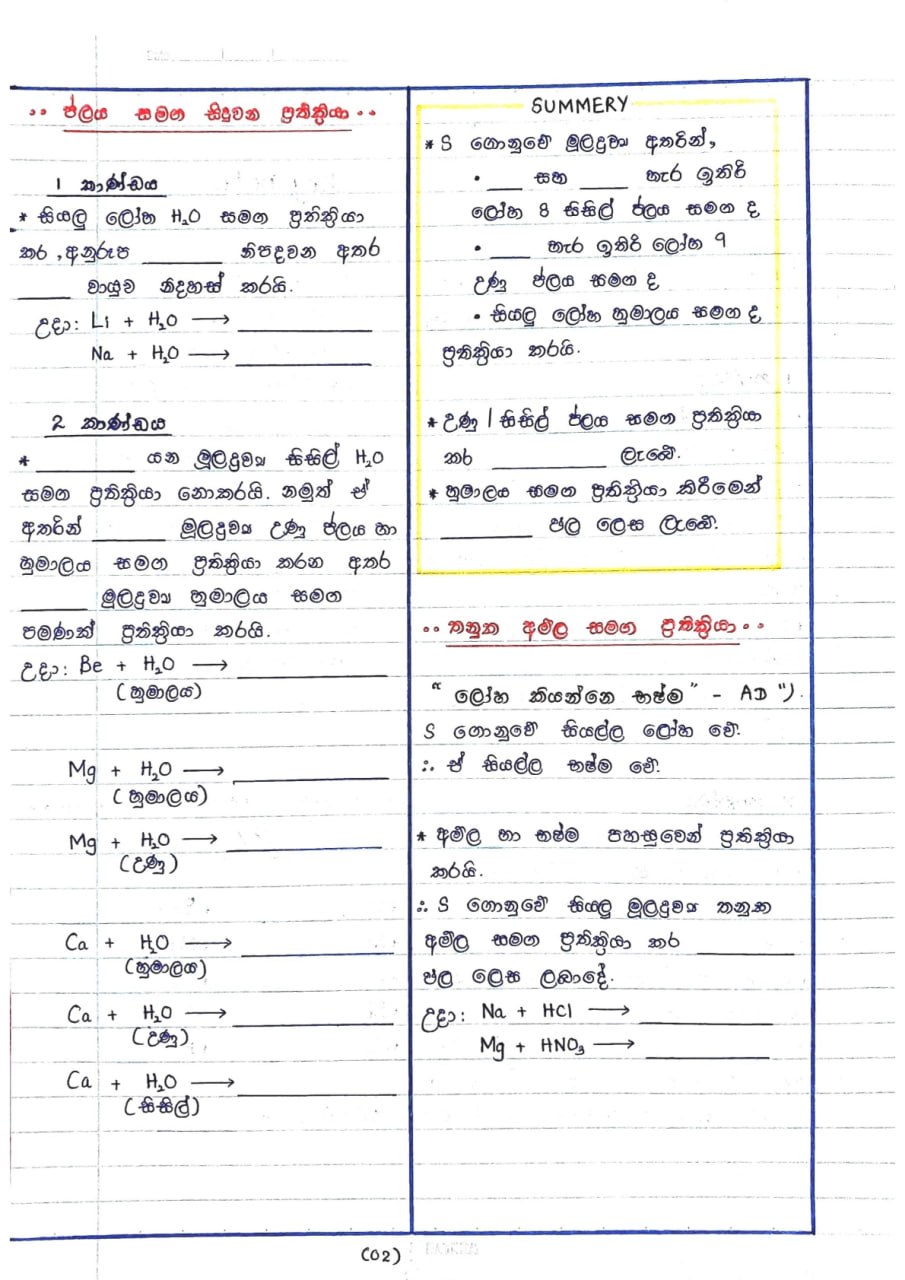 ·· ජලය සමග සිදුවන ප්‍රතික්‍රියා ··
1 කාණ්ඩය
* සියලු ලෝහ H₂O සමග ප්‍රතික්‍රියා
කර , අනුරූප ________ නිපදවන අතර
_____ වායුව නිදහස් කරයි.
උදා: Li + H₂O ⟶ ____________
Na + H₂O ⟶ ____________
2 කාණ්ඩය
* __________ යන මූලද්‍රව්‍ය සිසිල් H₂O
සමග ප්‍රතික්‍රියා නොකරයි. නමුත් ඒ
අතරින් _______ මූලද්‍රව්‍ය උණු ජලය හා
හුමාලය සමග ප්‍රතික්‍රියා කරන අතර
______ මූලද්‍රව්‍ය හුමාලය සමග
පමණක් ප්‍රතික්‍රියා කරයි.
උදා: Be + H₂O ⟶ ____________
(හුමාලය)
Mg + H₂O ⟶ ____________
(හුමාලය)
Mg + H₂O ⟶ ____________
(උණු)
Ca + H₂O ⟶ ____________
(හුමාලය)
Ca + H₂O ⟶ ____________
(උණු)
Ca + H₂O ⟶ ____________
(සිසිල්)
SUMMERY
* S ගොනුවේ මූලද්‍රව්‍ය අතරින්,
• ___ සහ ____ හැර ඉතිරි
ලෝහ 8 සිසිල් ජලය සමග ද
• ____ හැර ඉතිරි ලෝහ 9
උණු ජලය සමග ද
• සියලු ලෝහ හුමාලය සමග ද
ප්‍රතික්‍රියා කරයි.
* උණු / සිසිල් ජලය සමග ප්‍රතික්‍රියා
කර ____________ ලැබේ.
* හුමාලය සමග ප්‍රතික්‍රියා කිරීමෙන්
__________ ඵල ලෙස ලැබේ.
·· තනුක අම්ල සමග ප්‍රතික්‍රියා ··
“ ලෝහ කියන්නෙ භෂ්ම ” - AD ").
S ගොනුවේ සියල්ල ලෝහ වේ.
∴ ඒ සියල්ල භෂ්ම වේ.
* අම්ල හා භෂ්ම පහසුවෙන් ප්‍රතික්‍රියා
කරයි.
∴ S ගොනුවේ සියලු මූලද්‍රව්‍ය තනුක
අම්ල සමග ප්‍රතික්‍රියා කර __________
ඵල ලෙස ලබාදේ.
උදා: Na + HCl ⟶ ____________
Mg + HNO₃ ⟶ ____________
(02)